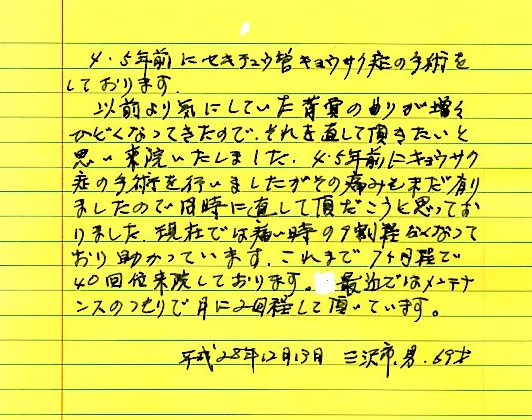 4.5年前にセキチュウ管キョウサク症の手術を
しております。
以前より気にしていた背骨の曲りが増々
ひどくなってきたので、それを直して頂きたいと
思い来院いたしました。4.5年前にキョウサク
症の手術を行いましたがその痛みもまだ有り
ましたので同時に直して頂だこうと思ってお
りました。現在では痛い時の9割程なくなって
おり助かっています。これまで7ヶ月程で
40回位来院しております。最近ではメンテナ
ンスのつもりで月に2回程して頂いています。
平成28年12月13日 三沢市.男.69才